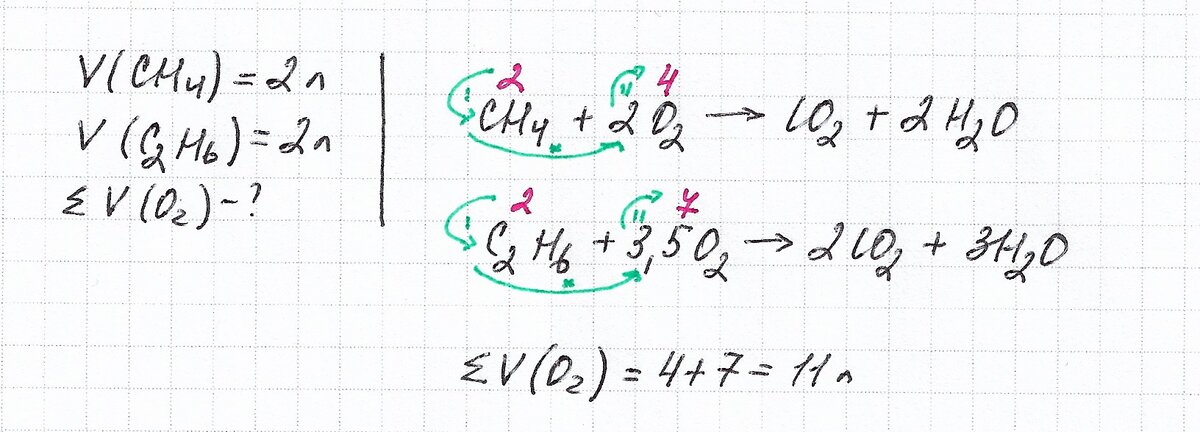 V(CH₄) = 2 л
V(C₂H₆) = 2 л
Σ V(O₂) - ?
2 4
CH₄ + 2O₂ → CO₂ + 2H₂O
2 7
C₂H₆ + 3,5O₂ → 2CO₂ + 3H₂O
ΣV(O₂) = 4 + 7 = 11 л